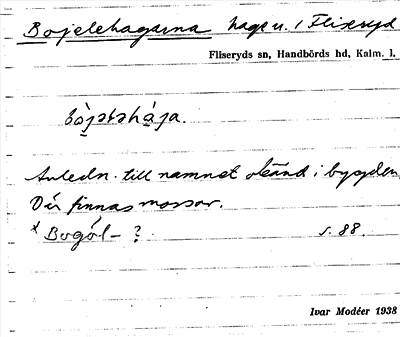 Bojelehagarna hage u. / Fliseryd
Fliseryds sn, Handbörds hd, Kalm. l.
bo̱jətəhága.
Anledn. till namnet okänd i bygden
Där finnas mossar.
x Bogöl- ? s. 88.
Ivar Modéer 1938